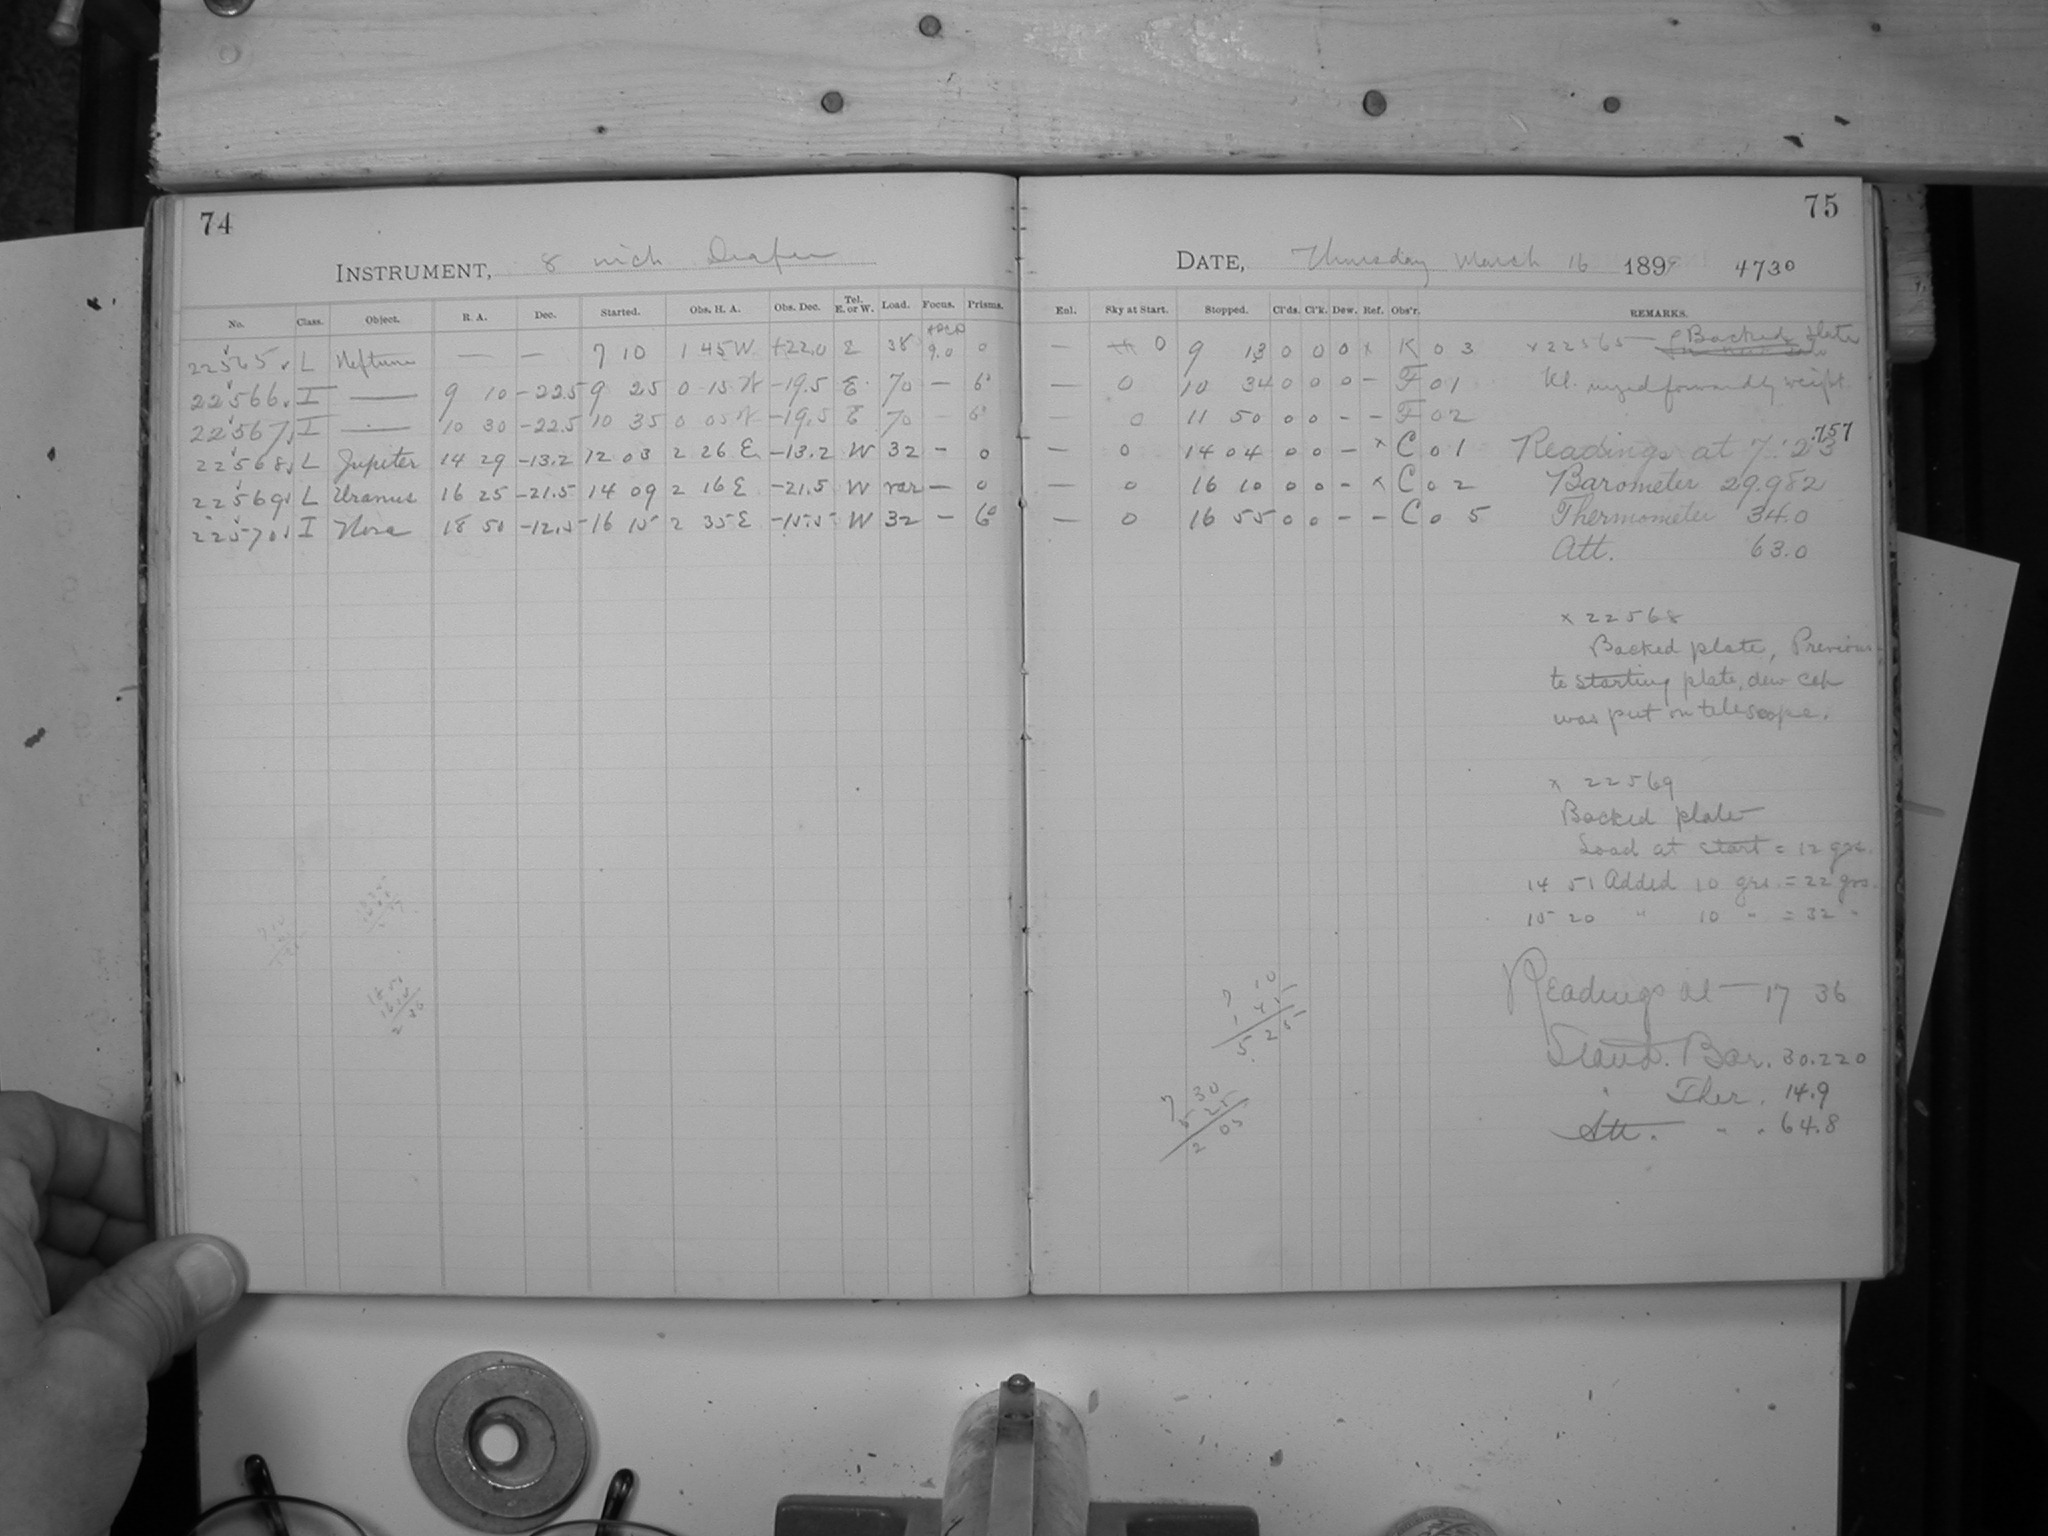 74
INSTRUMENT, 8 inch Draper
No. Class. Object. R. A. Dec. Started. Obs. H. A. Obs. Dec. Tel. E. or W. Load. Focus. Prisms.
22565 L Neptune — — 7 10 1 45 W +22.0 E 38 9.0 0
22566 I — 9 10 -22.5 9 25 0 15 W -19.5 E 70 — 6°
22567 I — 10 30 -22.5 10 35 0 05 W -19.5 E 70 — 6°
22568 L Jupiter 14 29 -13.2 12 03 2 26 E -13.2 W 32 — 0
22569 L Uranus 16 25 -21.5 14 09 2 16 E -21.5 W var — 0
22570 I Nova 18 50 -12.5 16 15 2 35 E -15.5 W 32 — 6°
75
DATE, Thursday March 16 1899 4730
Enl. Sky at Start. Stopped. Cl'ds. Cl'k. Dew. Ref. Obs'r. REMARKS.
— 0 9 13 0 0 0 x K 0 3 x 22565 — Backed plate
— 0 10 34 0 0 0 — F 0 1 Kl. urged forward by weight
— 0 11 50 0 0 - - F 0 2
— 0 14 04 0 0 - x C 0 1 Readings at 7:23 .757
— 0 16 10 0 0 - x C 0 2 Barometer 29.982
— 0 16 55 0 0 - - C 0 5 Thermometer 34.0
Att. 63.0
x 22568
Backed plate, Previous
to starting plate, dew cap
was put on telescope.
x 22569
Backed plate
Load at start = 12 grs.
14 51 Added 10 grs. = 22 grs.
15 20 " 10 " = 32 "
Readings at — 17 36
Stand. Bar. 30.220
" Ther. 14.9
Att. " " 64.8
7 10
1 45
5 25
7 30
5 25
2 05